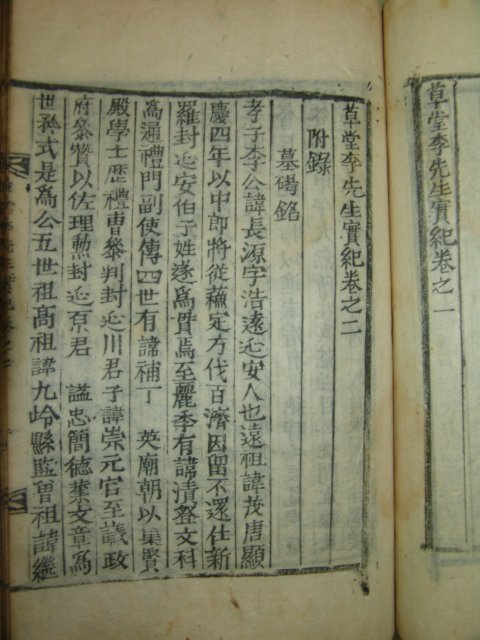 草堂李先生實紀卷之一
草堂李先生實紀卷之二
附錄
墓碣銘
孝子李公諱長源字浩遠延安人也遠祖諱茂唐顯
慶四年以中郎將從蘇定方伐百濟因留不還仕新
羅封延安伯子姓遂爲貫焉至麗季有諱淸登文科
爲通禮門副使傳四世有諱補丁 英廟朝以集賢
殿學士歷禮曹叅判封延川君子諱崇元官至議政
府叅贊以佐理勳封延原君 謚忠簡德業文章爲
世矜式是爲公五世祖高祖諱九岭縣監曾祖諱繼